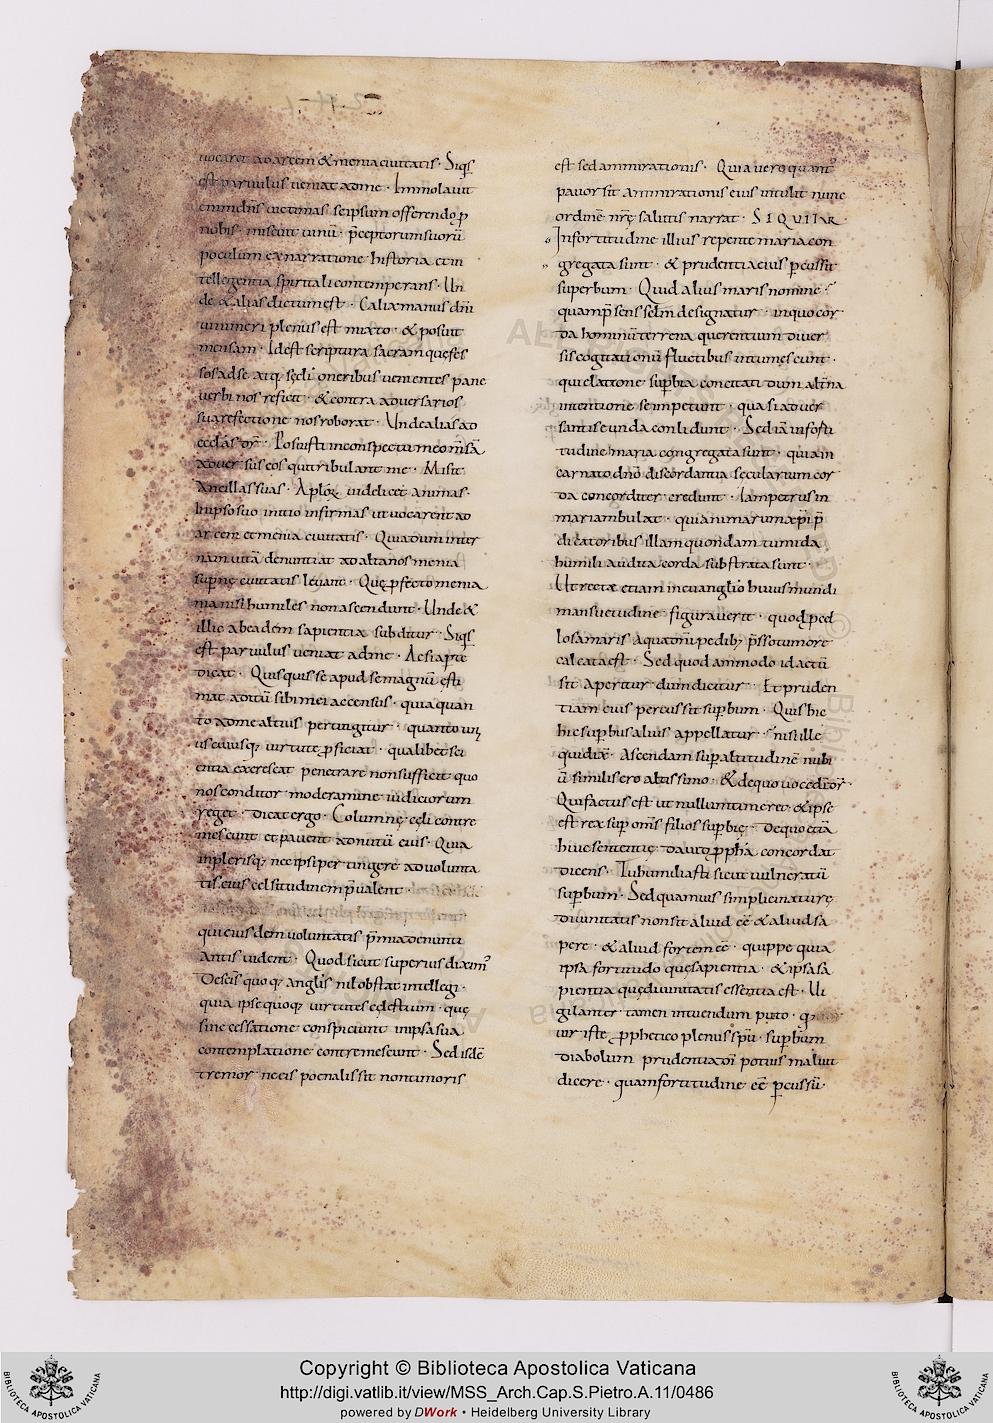 uocaret ad arcem & menia ciuitatis · Siqs̄
est paruulus ueniat adme · Immolauit
enim dn̄s uictimas seipsum offerendo ꝓ
nobis · miscuit uinū · p̄ceptorum suorū
poculum ex narratione historia et in
tellegentia spiritali contemperans · Un
de & alias dictum est · Calix manus dn̄i
uini meri plenus est mixto · & posuit
mensam · Id est scriptura sacram quęses
sos adse atq; sęcli oneribus uenientes pane
uerbi nos reficit · & contra aduersarios
sua refectione nos roborat · Unde alias ad
eccl̄as dr̄ · Posuisti inconspectu meo m̄sā
aduersus eos qui tribulant me · Misit
ancillas suas · Aplōꝝ uidelicet animas ·
In ipso suo initio infirmas ut uocarent ad
arcem et menia ciuitatis · Quia dum inter
nam uitā denuntiat ad altanos menia
sup̄nę ciuitatis leuant · Quę ꝓfecto menia
manisi humiles non ascendunt · Unde &
illic abeadem sapientia subditur · Siqs̄
est paruulus ueniat adme · Ac si apte
dicat · Quisquis se apud se magnū ęsti
mat aditū sibi mei accensus · quia quan
to ad me altius pertingitur · quanto un
uscuiusq; uirtute ꝓficiat · qualibet sci
entia excrescat penetrare non sufficit quo
nos conditor moderamine iudiciorum
reget · Dicat ergo · Columnę cęli contre
mescunt et pauent ad nutū eius · Quia
inplerisq; nec ipsi pertingere ad uolunta
tis eius celsitudinem p̄ualent ·
qui eiusdem uoluntatis p̄mia denunti
antis uident · Quod sicut superius diximꝰ
De scis̄ quoq; anglis nil obstat intellegi ·
quia ipse quoq; uirtutes cęlestium · quę
sine cessatione conspiciunt in ipsa sua
contemplatione contremescunt · Sed isdē
tremor ne eis poenalis sit non timoris
est sed ammirationis · Quia uero quantꝰ
pauor sit ammirationis eius intulit nunc
ordinē nrę̄ salutis narrat · SIQUITAR ·
Infortitudine illius repente maria con
gregata sunt · & prudentia eius ꝑcussit
superbum · Quid alius maris nomine
quam p̄sens sclm̄ designatur · in quo cor
da hominū terrena querentium diuer
sis cogitationū fluctibus intumescunt ·
qui elatione suꝑbia concitati dum alt̄na
intentione se impetunt · quasi aduer
santis eunda conlidunt · Sed iā in forti
tudine maria congregata sunt · quia in
carnato dnō discordantia secularium cor
da concorditer credunt · Iam petrus in
mari ambulat · quia nimarum xp̄i p̄
dicatoribus illa quondam tumida
humili audita corda substrata sunt ·
Ut recte etiam in euangl̄io huius mundi
mansuetudine figurauerit · quod ped
lo samaris aqua dn̄i pedib; p̄sso tumore
calcata est · Sed quod ammodo id actū
sit aperitur dum dicitur · Et pruden
tiam eius percussit suꝑbum · Quis hic
hic suꝑbus alius appellatur nisi ille
qui dix̄ · Ascendam suꝑ altitudinē nubi
ū similis ero altissimo · & de quo uoce dr̄
Qui factus est ut nullum timeret & ipse
est rex suꝑ om̄s filios suꝑbię · De quo etiā
huic sententię dauid ꝓph̄a concordat
dicens · Tu humiliasti sicut uulneratū
suꝑbum · Sed quamuis simplici naturę
diuinitatis non sit aliud eē & aliud sa
pere · & aliud fortem eē · quippe quia
ipsa fortitudo quę sapientia · & ipsa sa
pientia quę diuinitatis essentia est · Ui
gilanter tamen intuendum puto · q
uir iste ꝓphetico plenus sp̄u · suꝑbum
diabolum prudentia dn̄i potius maluit
dicere · quam fortitudine eē ꝑcussū ·
Copyright © Biblioteca Apostolica Vaticana
http://digi.vatlib.it/view/MSS_Arch.Cap.S.Pietro.A.11/0486
powered by DWork • Heidelberg University Library
BIBLIOTECA APOSTOLICA VATICANA
BIBLIOTECA APOSTOLICA VATICANA